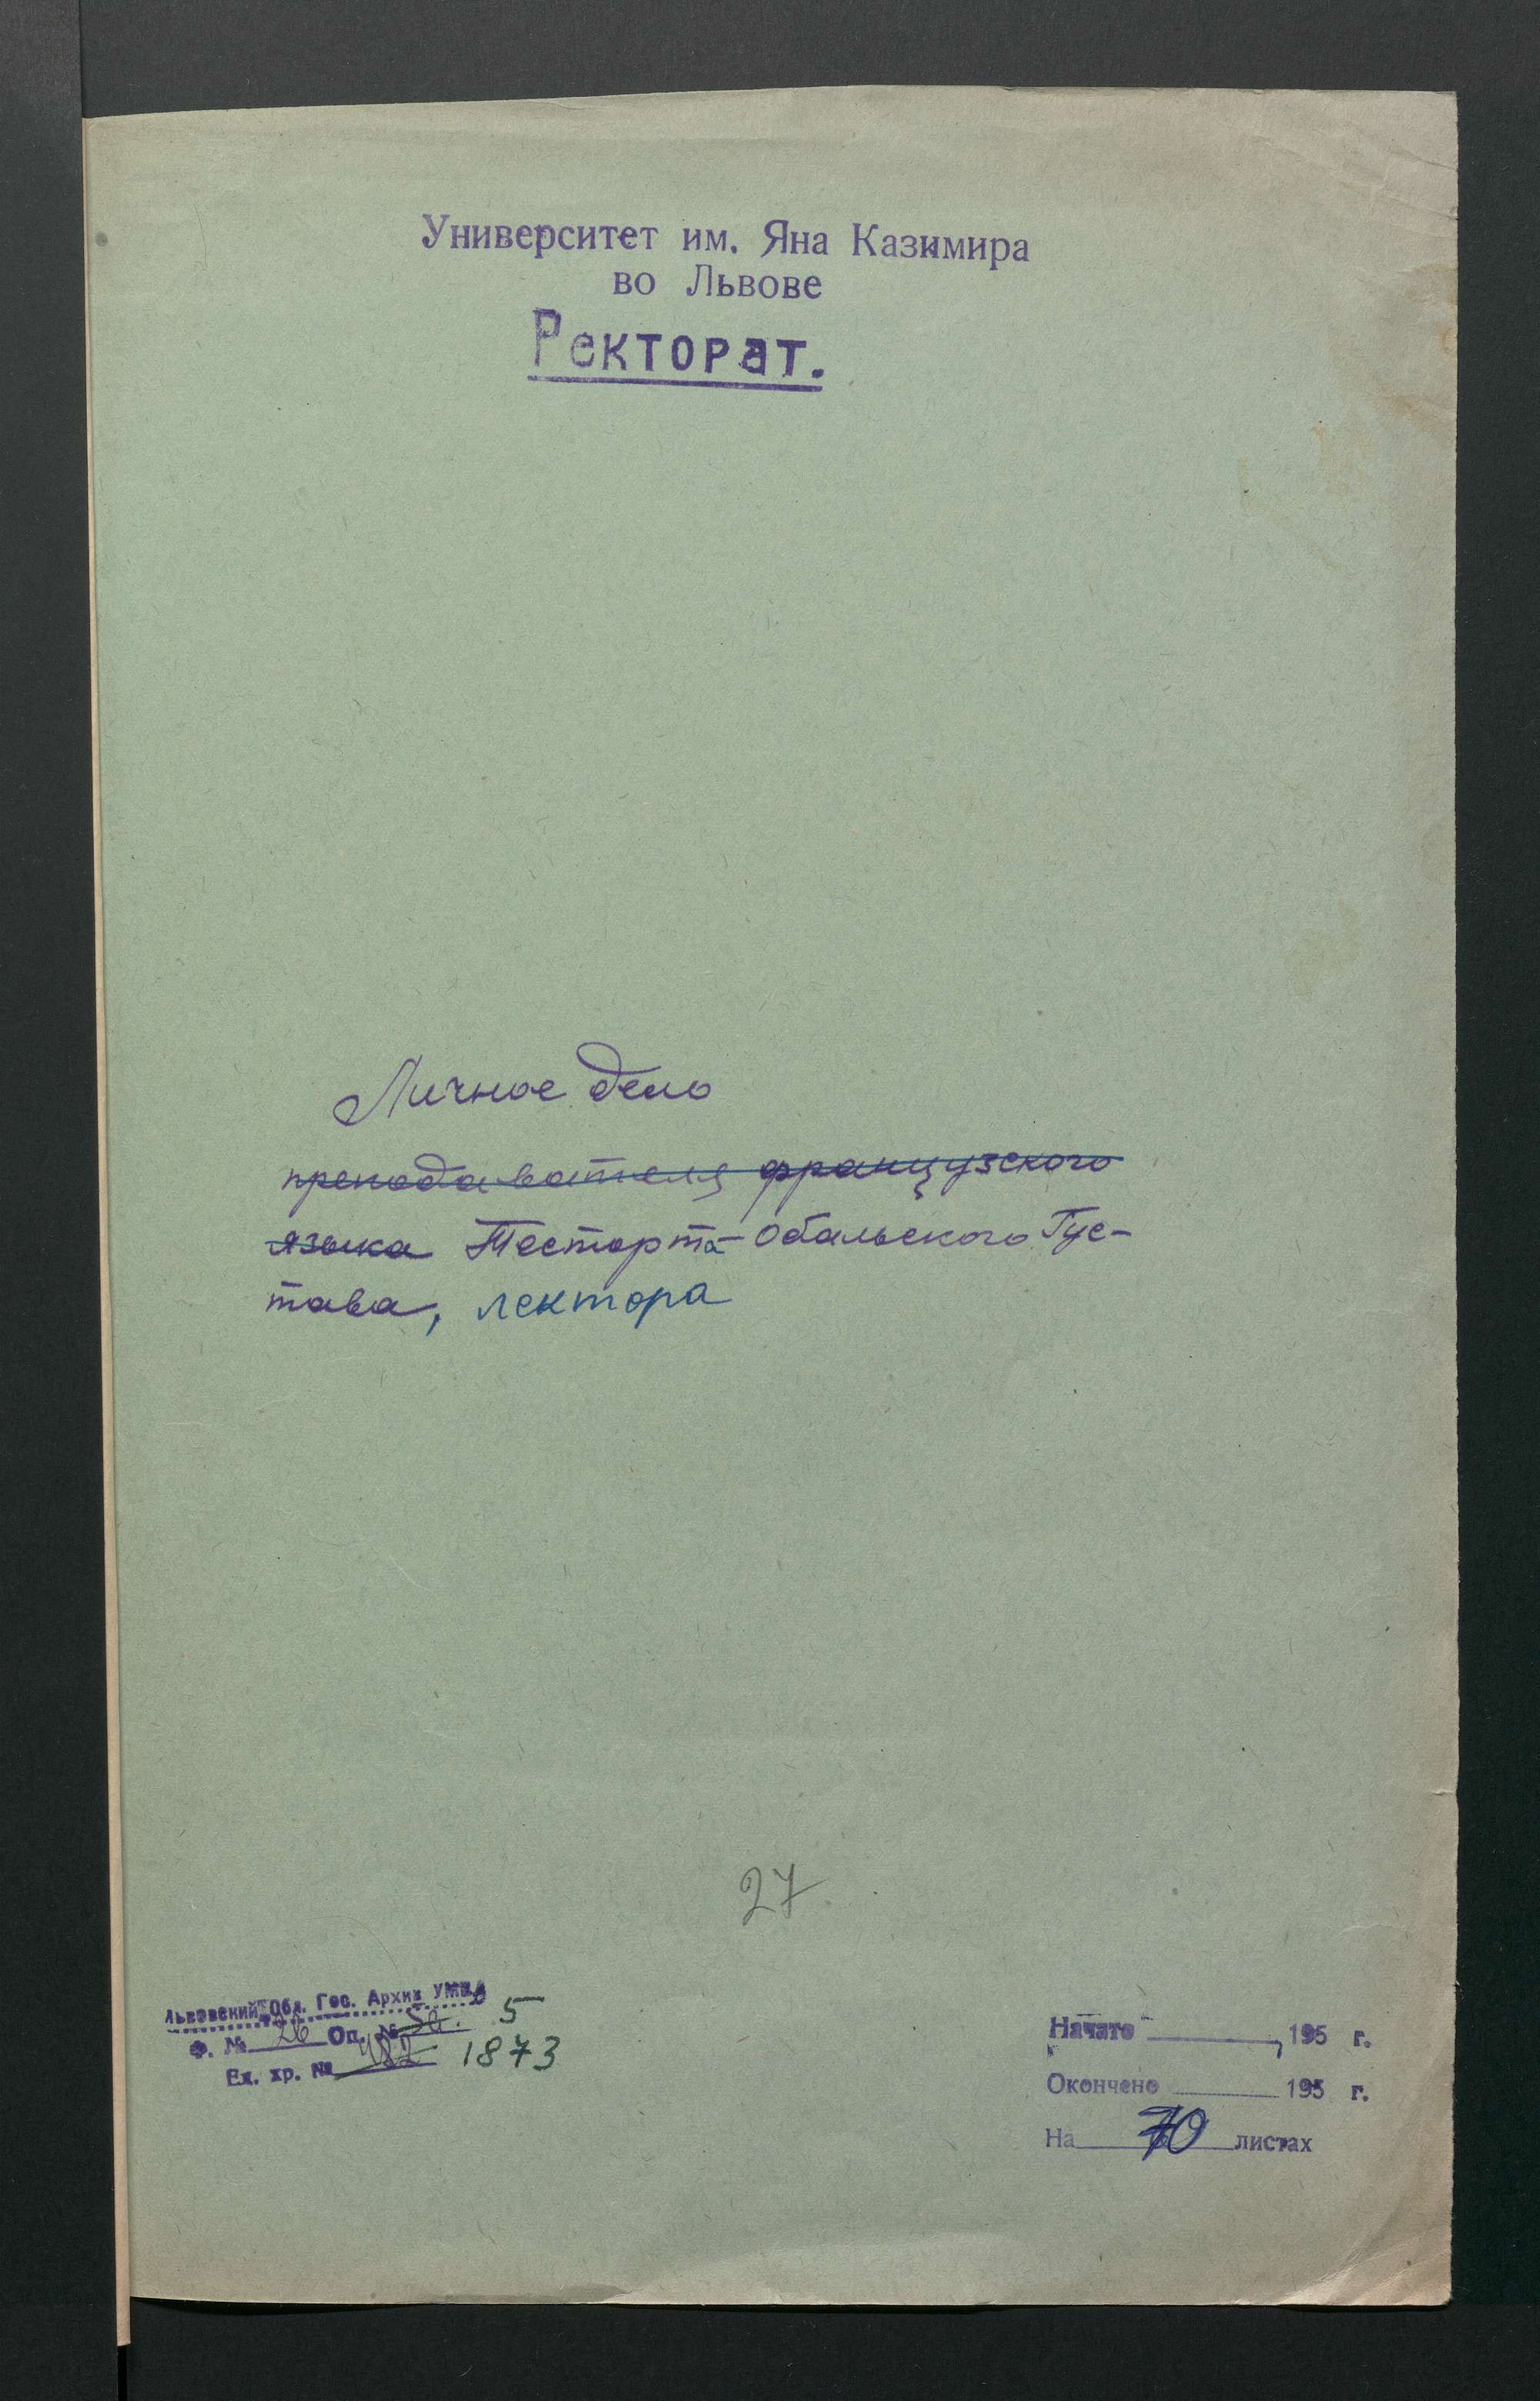 Университет им. Яна Казимира
во Львове
Ректорат.
Личное дело
преподавателя французского
языка Тесторта-Обальского Гус-
тава, лектора
27
Львовский Обл. Гос. Архив УМВД
Ф. № 26 Оп. № 5а. 5
Ед. хр. № 482 1873
Начато 195 г.
Окончено 195 г.
На 70 листах